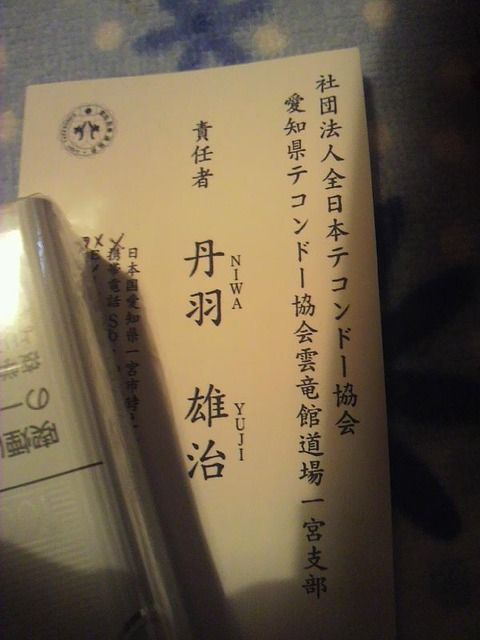 社団法人全日本テコンドー協会
愛知県テコンドー協会雲竜館道場一宮支部
責任者
丹羽 雄治
NIWA YUJI
日本国愛知県一宮市
携帯電話
喫煙
の